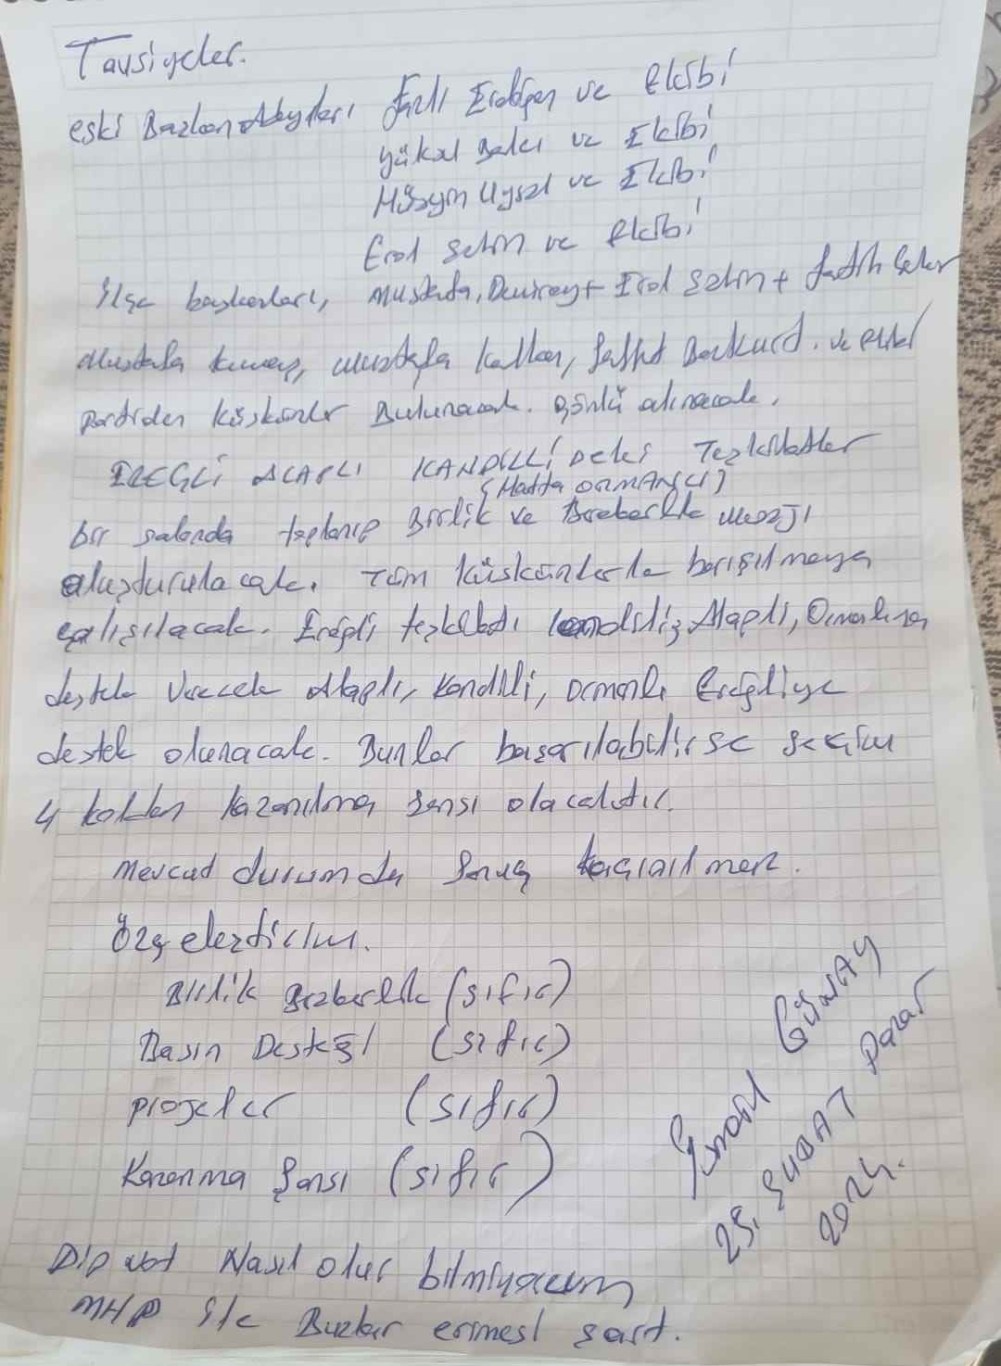 Tavsiyeler.
eski Başkan Adayları Fazlı Erdoğan ve Ekibi
Yüksel ve Ekibi
Hüseyin Uysal ve Ekibi
Erol Şahin ve Ekibi
İlçe başkanları, Mustafa, Demiray + Erol Şahin + Fatih
Mustafa Mustafa Kaltan, Saffet Bozkurt. ve
partiden küskünler Bulunacak. gönlü alınacak.
EREĞLİ ALAPLI KANDİLLİ Deki Teşkilatlar
(Hatta ORMANLI)
bir salonda toplanıp Birlik ve Beraberlik mesajı
oluşturulacak. Tüm küskünlerle barışılmaya
çalışılacak. Ereğli teşkilatı Alaplı, Ormanlıya
destek verecek Alaplı, Kandilli, Ormanlı Ereğliye
destek olunacak. Bunlar başarılabilirse seçim
4 koldan kazanılma şansı olacaktır.
Mevcud durumda
Özeleştirim.
Birlik Beraberlik (sıfır)
Basın Desteği (sıfır)
projeler (sıfır)
Kazanma Şansı (sıfır)
İsmail Günay
25. ŞUBAT Pazar
2024.
Dip not Nasıl olur bilmiyorum
MHP ile Buzlar erimesi şart.